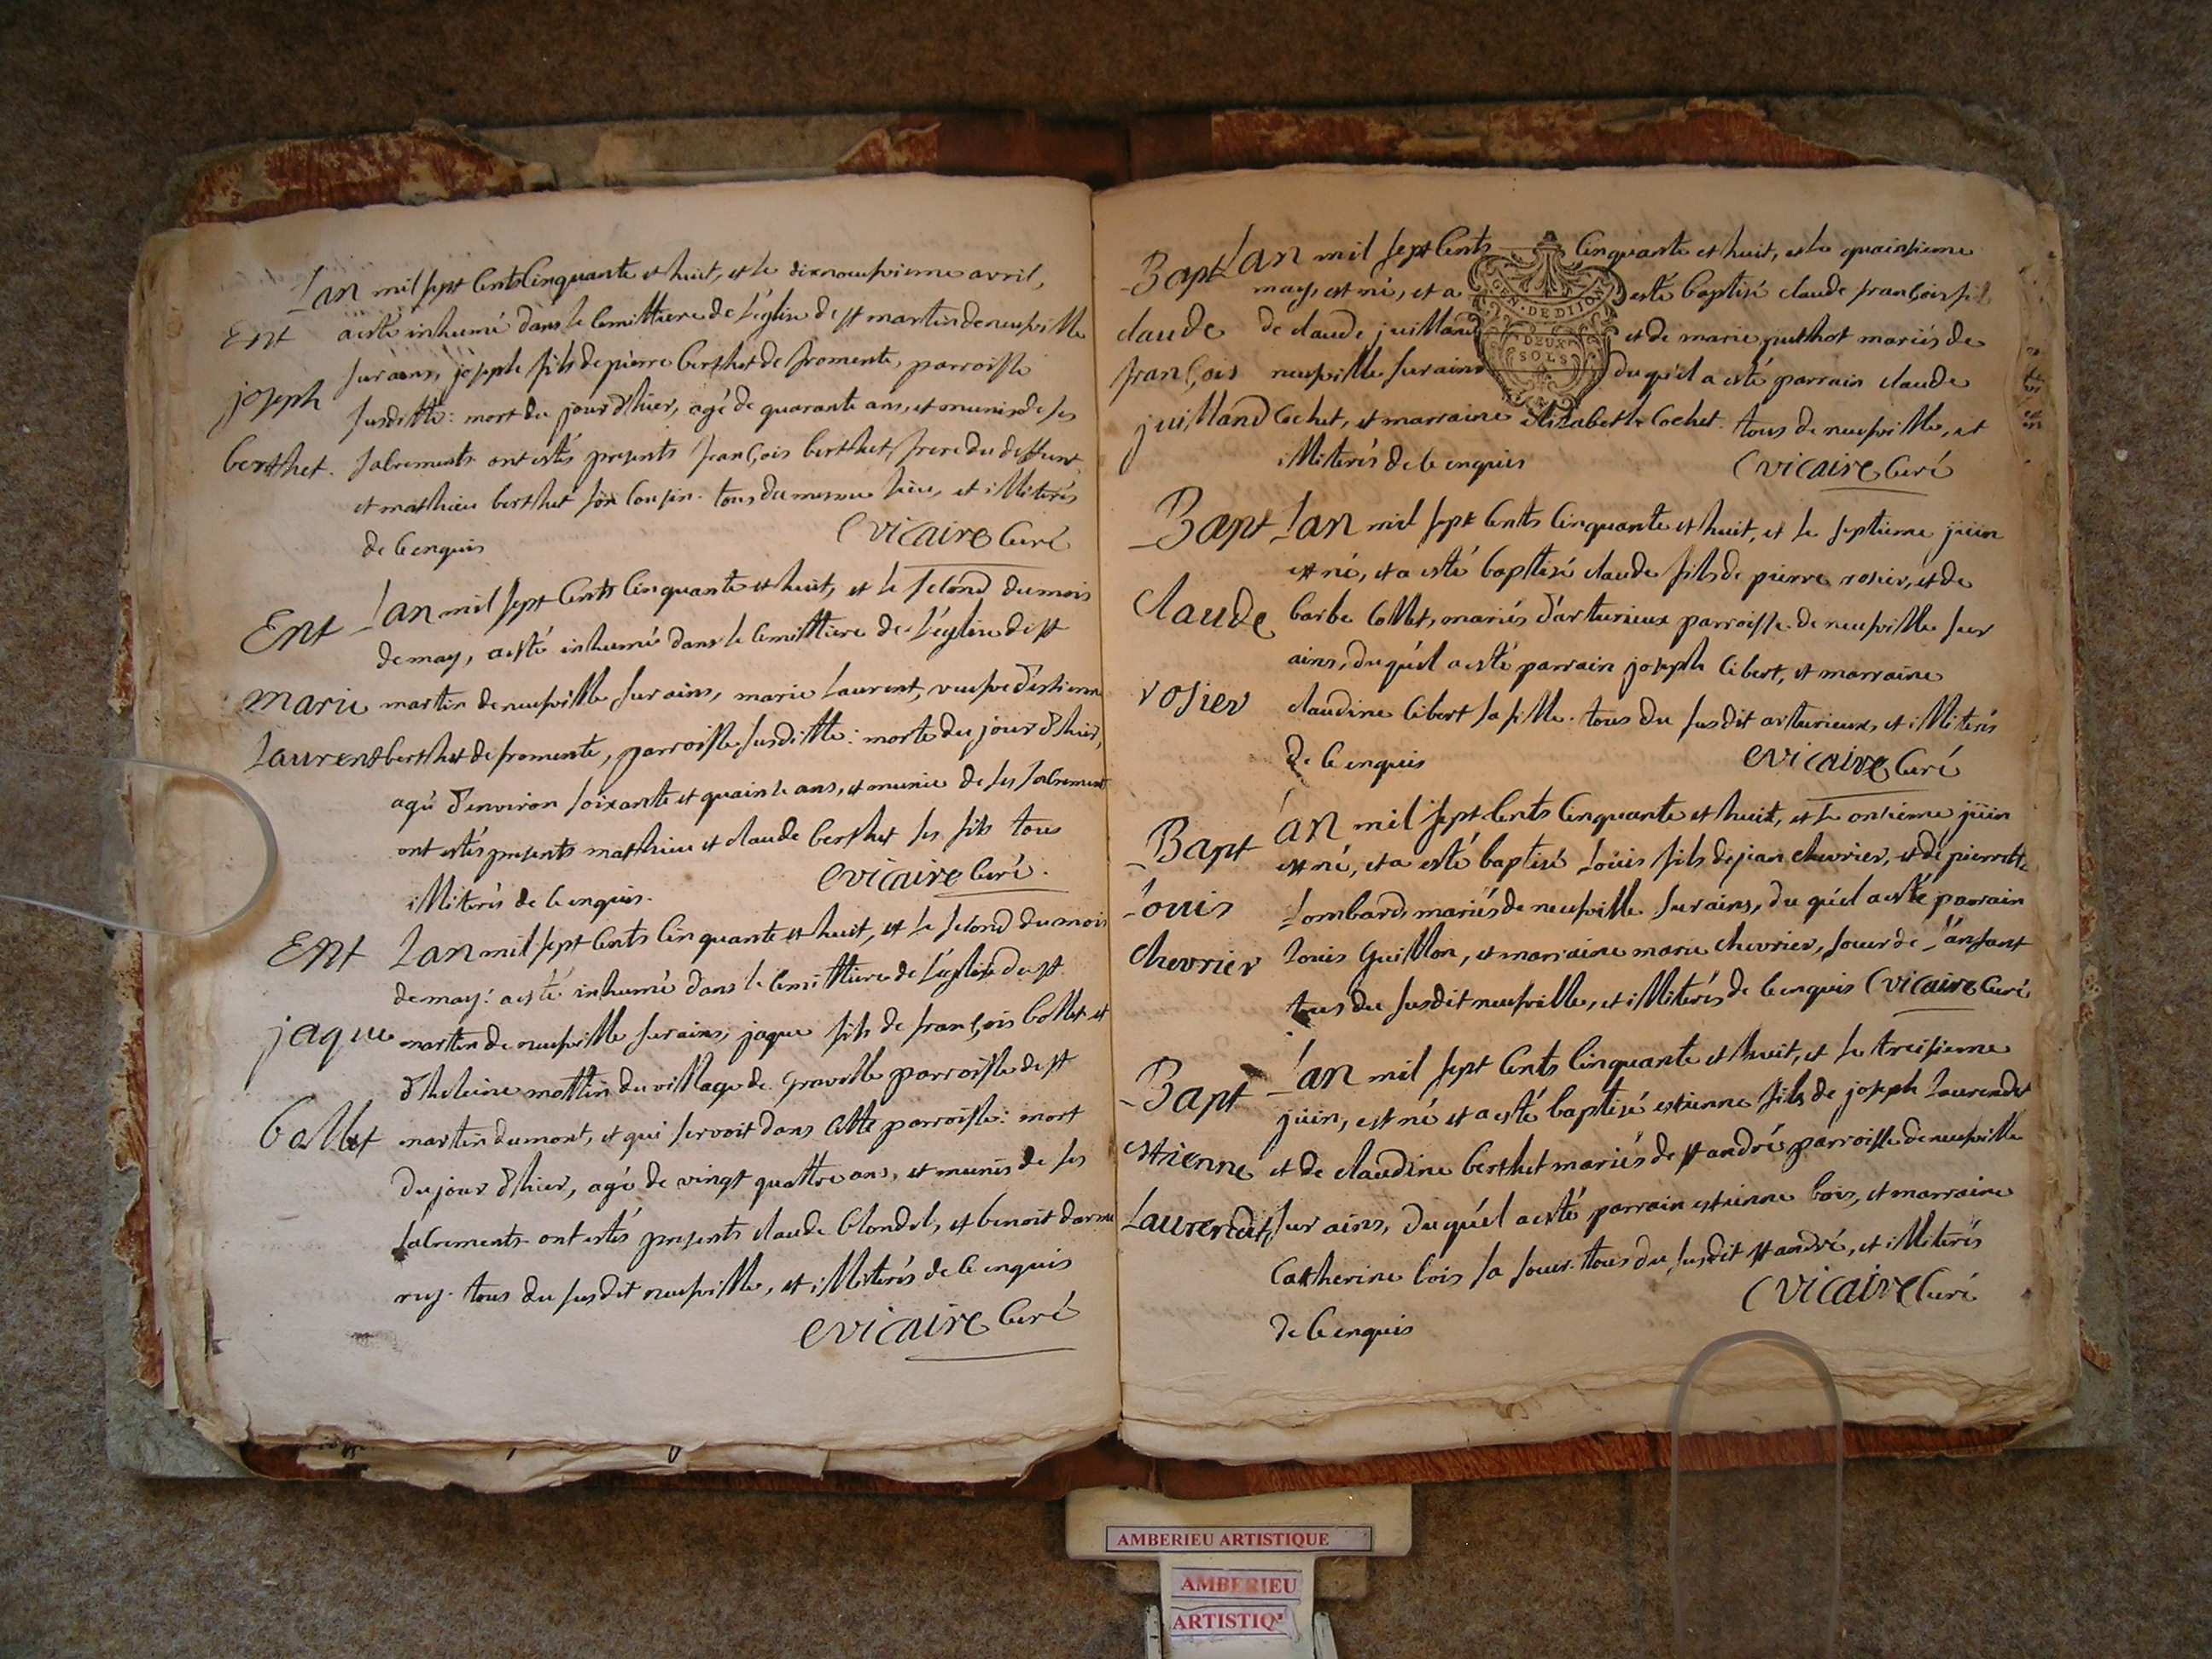 Lan mil sept Cents Cinquante et huit, et le dixneufvieme avril,
Ent
a esté inhumé dans le Cemittiere de L'église de st martin de neufville
sur ains, joseph fils de pierre berthet de fromente, parroisse
joseph
susditte: mort du jour d'hier, agé de quarante ans, et munis de ses
berthet.
sacrements ont estés presents françois berthet, frere du deffunt
et matthieu berthet son Cousin. tous du mesme lieu, et illiterés
de Ce enquis
Cvicaire Curé
Ent
Lan mil sept Cents Cinquante et huit, et le second du mois
de may, a esté inhumée dans le Cemittiere de L'église de st
marie
martin de neufville sur ains, marie Laurent, veufve d'estienne
Laurent
berthet de fromente, parroisse susditte: morte du jour d'hier,
agée d'environ soixante et quainze ans, et munie de ses sacrements
ont estés presents matthieu et claude berthet ses fils tous
illiterés de Ce enquis.
Cvicaire Curé.
Ent
Lan mil sept Cents Cinquante et huit, et le second du mois
de may: a esté inhumé dans le Cemittiere de L'église de st
jaque
martin de neufville sur ains, jaque fils de françois Collet et
d'heleine mottin du village de Gravelle parroisse de st
Collet
martin du mont, et qui servoit dans Cette parroisse: mort
du jour d'hier, agé de vingt quattre ans, et munis de ses
sacrements. ont estés presents claude blondel, et benoit darme
rey. tous du susdit neufville, et illiterés de Ce enquis
Cvicaire Curé
Bapt
Lan mil sept Cents Cinquante et huit, et le quainsieme
may, est né, et a esté baptisé claude françois fil
claude
de claude juilland et de marie puthot mariés de
françois
neufville sur ains du quél a esté parrain claude
GEN. DE DIJON
DEUX
SOLS
juilland
Cochet, et marraine Elizabeth Cochet. tous de neufville, et
illiterés de Ce enquis
Cvicaire Curé
Bapt
Lan mil sept Cents Cinquante et huit, et le septieme juin
est né, et a esté baptisé claude fils de pierre rosier, et de
Claude
barbe Collet, mariés d'arturieux parroisse de neufville sur
ains, du quél a esté parrain joseph Cibert, et marraine
rosier
claudine Cibert sa fille. tous du susdit arturieux, et illiterés
de Ce enquis
Cvicaire Curé
Bapt
Lan mil sept Cents Cinquante et huit, et le onsieme juin
est né, et a esté baptisé Louis fils de jean chevrier, et de pierrette
Louis
Lombard, mariés de neufville sur ains, du quél a esté parrain
Chevrier
Louis Guillon, et marraine marie chevrier, soeur de L'anfant
tous du susdit neufville, et illiterés de Ce enquis Cvicaire Curé
Bapt
Lan mil sept Cents Cinquante et huit, et le treisieme
juin, est né et a esté baptisé estienne fils de joseph Laurendet
estienne
et de claudine berthet mariés de st andré parroisse de neufville
Laurendet
sur ains, du quél a esté parrain estienne bois, et marraine
Catherine bois sa soeur. tous du susdit st andré, et illiterés
de Ce enquis
Cvicaire Curé
AMBERIEU ARTISTIQUE
AMBERIEU
ARTISTIQ